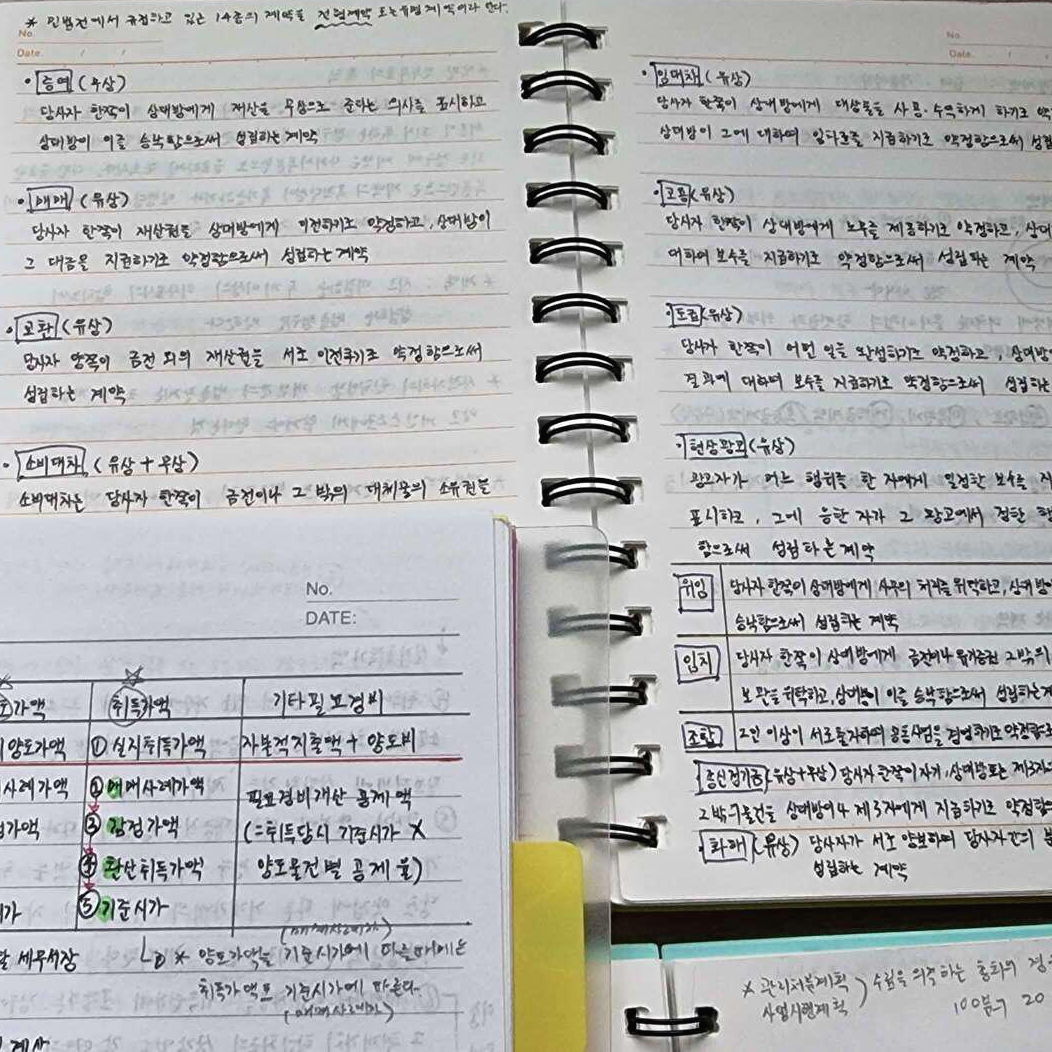 * 민법전에서 규정하고 있는 14종의 계약을 전형계약 또는 유명계약이라 한다.
No.
Date. / /
• 증여 (무상)
당사자 한쪽이 상대방에게 재산을 무상으로 준다는 의사를 표시하고
상대방이 이를 승낙함으로써 성립하는 계약
• 매매 (유상)
당사자 한쪽이 재산권을 상대방에게 이전하기로 약정하고, 상대방이
그 대금을 지급하기로 약정함으로써 성립하는 계약
• 교환 (유상)
당사자 양쪽이 금전 외의 재산권을 서로 이전하기로 약정함으로써
성립하는 계약
• 소비대차 (유상 + 무상)
소비대차는 당사자 한쪽이 금전이나 그 밖의 대체물의 소유권을
No.
Date. / /
• 임대차 (유상)
당사자 한쪽이 상대방에게 대상물을 사용·수익하게 하기로
상대방이 그에 대하여 임차료를 지급하기로 약정함으로써
• 고용 (유상)
당사자 한쪽이 상대방에게 노무를 제공하기로 약정하고,
대하여 보수를 지급하기로 약정함으로써 성립하는 계약
• 도급 (유상)
당사자 한쪽이 어떤 일을 완성하기로 약정하고,
결과에 대하여 보수를 지급하기로 약정함으로써 성립하는
• 현상광고 (유상)
광고자가 어느 행위를 한 자에게 일정한 보수를
표시하고, 그에 응한 자가 그 광고에서 정한
함으로써 성립하는 계약
위임 당사자 한쪽이 상대방에게 사무의 처리를 위탁하고,
승낙함으로써 성립하는 계약
임치 당사자 한쪽이 상대방에게 금전이나 유가증권 그 밖의
보관을 위탁하고, 상대방이 이를 승낙함으로써 성립하는
조합 2인 이상이 서로 출자하여 공동사업을 경영하기로
종신정기금 (유상+무상) 당사자 한쪽이 자기, 상대방 또는 제3자
그 밖의 물건을 상대방이나 제3자에게 지급하기로
화해 (유상) 당사자가 서로 양보하여 당사자간의
성립하는 계약
No.
DATE:
가액 취득가액 기타필요경비
양도가액 ① 실지취득가액 자본적지출액 + 양도비
사례가액 ② 매매사례가액 필요경비개산공제액
가액 ③ 감정가액 (=취득당시 기준시가 ×
④ 환산취득가액 양도물건별 공제율)
⑤ 기준시가
세무서장 * 양도가액을 기준시가에 따를 때에는
(매매사례가)
취득가액도 기준시가에 따른다.
(매매사례가)
계산
* 관리처분계획
사업시행계획 ) 수립을 의하는 총회의 경
20